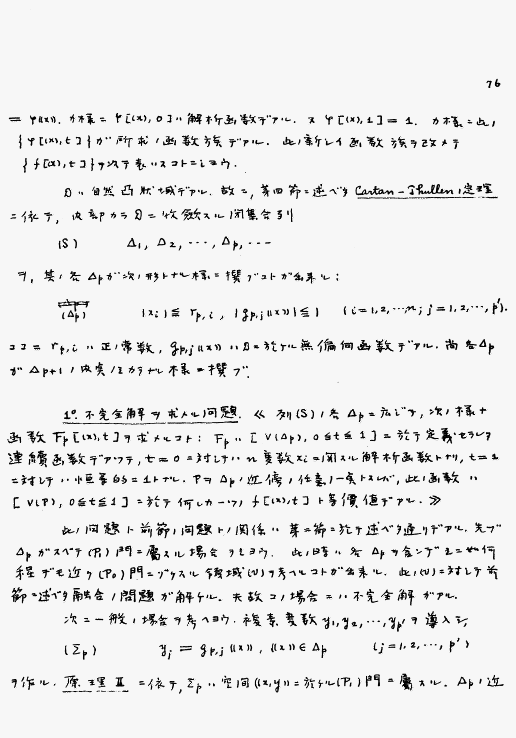 76
= φ((x)). カ様ニ φ[(x),0] ハ解析函数デアル. 又 φ[(x),1] = 1. カ様ニ此ノ
{φ[(x),t]} ガ所求ノ函数族デアル. 此ノ新シイ函数族ヲ改メテ
{f[(x),t]} ヲ以テ表ハスコトニシヨウ.
D ハ自然凸状域デアル. 故ニ, 第四節ニ述ベタ Cartan-Thullen ノ定理
ニ依テ, 内部カラ D ニ収斂スル閉集合列
(S) Δ1, Δ2, ···, Δp, ···
ヲ, 其ノ各 Δp ガ次ノ形トナル様ニ撰ブコトガ出来ル:
(Δp) |xi| ≦ rp,i , |gp,j((x))| ≦ 1 (i=1,2,···,n; j=1,2,···,p').
ココニ rp,i ハ正ノ常数, gp,j((x)) ハ D ニ於ケル無偏倚函数デアル. 尚各 Δp
ガ Δp+1 ノ内実ノミカラナル様ニ撰ブ.
1º. 不完全解ヲ求メル問題. 《 列(S)ノ各 Δp ニ応ジテ, 次ノ様ナ
函数 Fp[(x),t] ヲ求メルコト: Fp ハ [V(Δp), 0≦t≦1] ニ於テ定義セラレタ
連続函数デアツテ, t=0 ニ対シテハ n 変数 xi ニ関スル解析函数トナリ, t=1
ニ対シテハ恒等的ニ 1 トナル. P ヲ Δp ノ近傍ノ任意ノ一点トスレバ, 此ノ函数ハ
[V(P), 0≦t≦1] ニ於テ何レカ一ツノ f[(x),t] ト等價値デアル. 》
此ノ問題ト前節ノ問題トノ関係ハ第二節ニ於テ述ベタ通リデアル. 先ヅ
Δp ガスベテ (P0) 門ニ属スル場合ヲ見ヨウ. 此ノ時ハ各 Δp ヲ含ンデ之ニ如何
程デモ近ク (P0) 門ニゾクスル領域(U)ヲ考ヘルコトガ出来ル. 此ノ(U)ニ対シテ前
節ニ述ベタ融合ノ問題ガ解ケル. 夫故コノ場合ニハ不完全解ガアル.
次ニ一般ノ場合ヲ考ヘヨウ. 複素変数 y1, y2, ···, yp' ヲ導入シ,
(Σp) yj = gp,j((x)), (x) ∈ Δp (j=1,2,···,p')
ヲ作ル. 原理 II ニ依テ, Σp ハ空間 ((x,y)) ニ於ケル (P0) 門ニ属スル. Δp ノ近